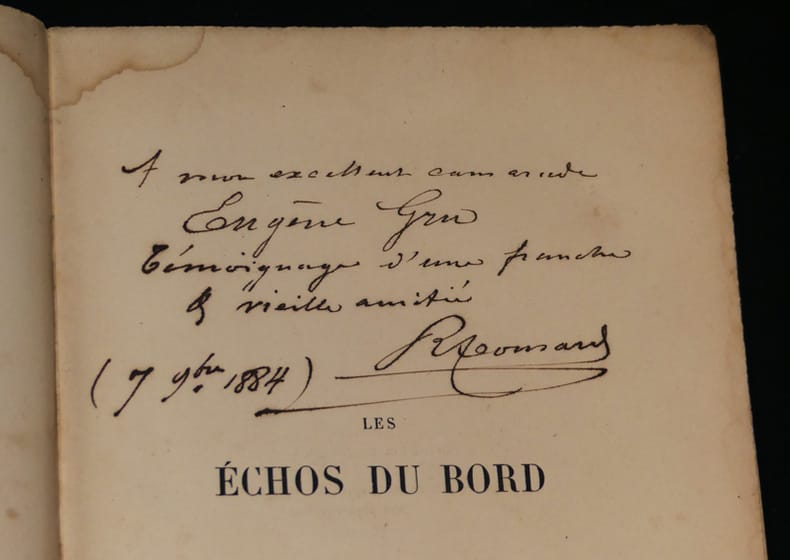 A mon excellent camarade
Eugène Gru
Témoignage d'une franche
& vieille amitié
(7 9bre 1884)
LES
ÉCHOS DU BORD